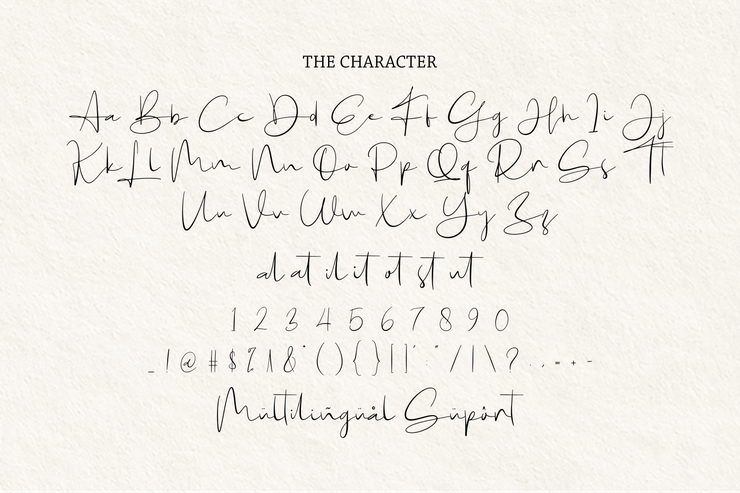 THE CHARACTER
Aa Bb Cc Dd Ee Ff Gg Hh Ii Jj
Kk Ll Mm Nn Oo Pp Qq Rr Ss Tt
Uu Vv Ww Xx Yy Zz
al at il it ot st ut
1 2 3 4 5 6 7 8 9 0
_ ! @ # $ % ^ & * ( ) { } [ ] ' : " / | \ ? . , = + -
Mültilińgüål Süpôrt